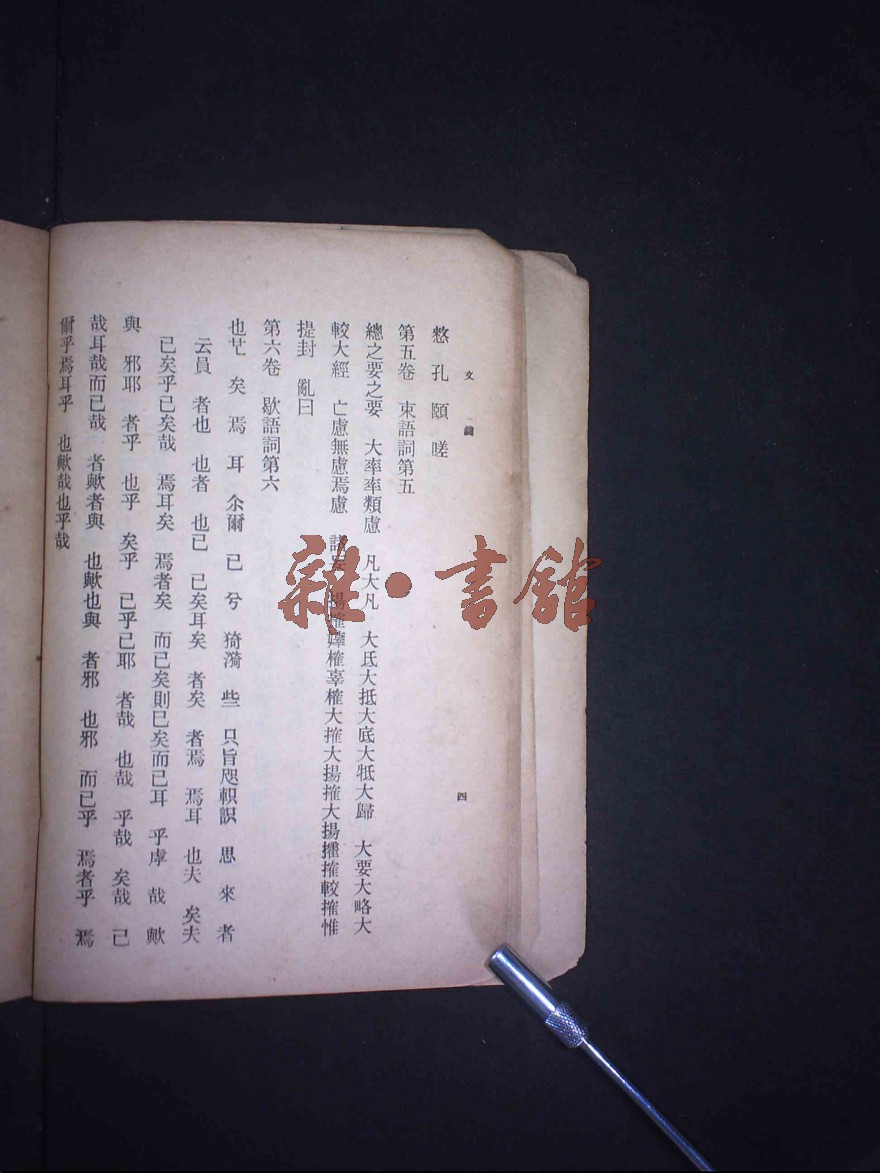 文 鍵 四
憖 孔 頤 嗟
第五卷 束語詞第五
總之要之要 大率率類慮 凡大凡 大氐大抵大底大牴大歸 大要大略大
較大經 亡慮無慮焉慮 揚榷嫴榷辜榷大搉大揚搉大揚搉較搉惟
提封 亂曰
第六卷 歇語詞第六
也 矣 焉 耳 尒爾 已 兮 猗漪 些 只旨咫軹 思 來 者
云員 者也 也者 也已 已矣耳矣 者矣 者焉 焉耳 也夫 矣夫
已矣乎已矣哉 焉耳矣 焉者矣 而已矣則已矣而已耳 乎虖 哉 歟
與 邪耶 者乎 也乎 矣乎 已乎已耶 者哉 也哉 乎哉 矣哉 已
哉耳哉而已哉 者歟者與 也歟也與 者邪 也邪 而已乎 焉者乎 焉
爾乎焉耳乎 也歟哉也乎哉
雜·書館